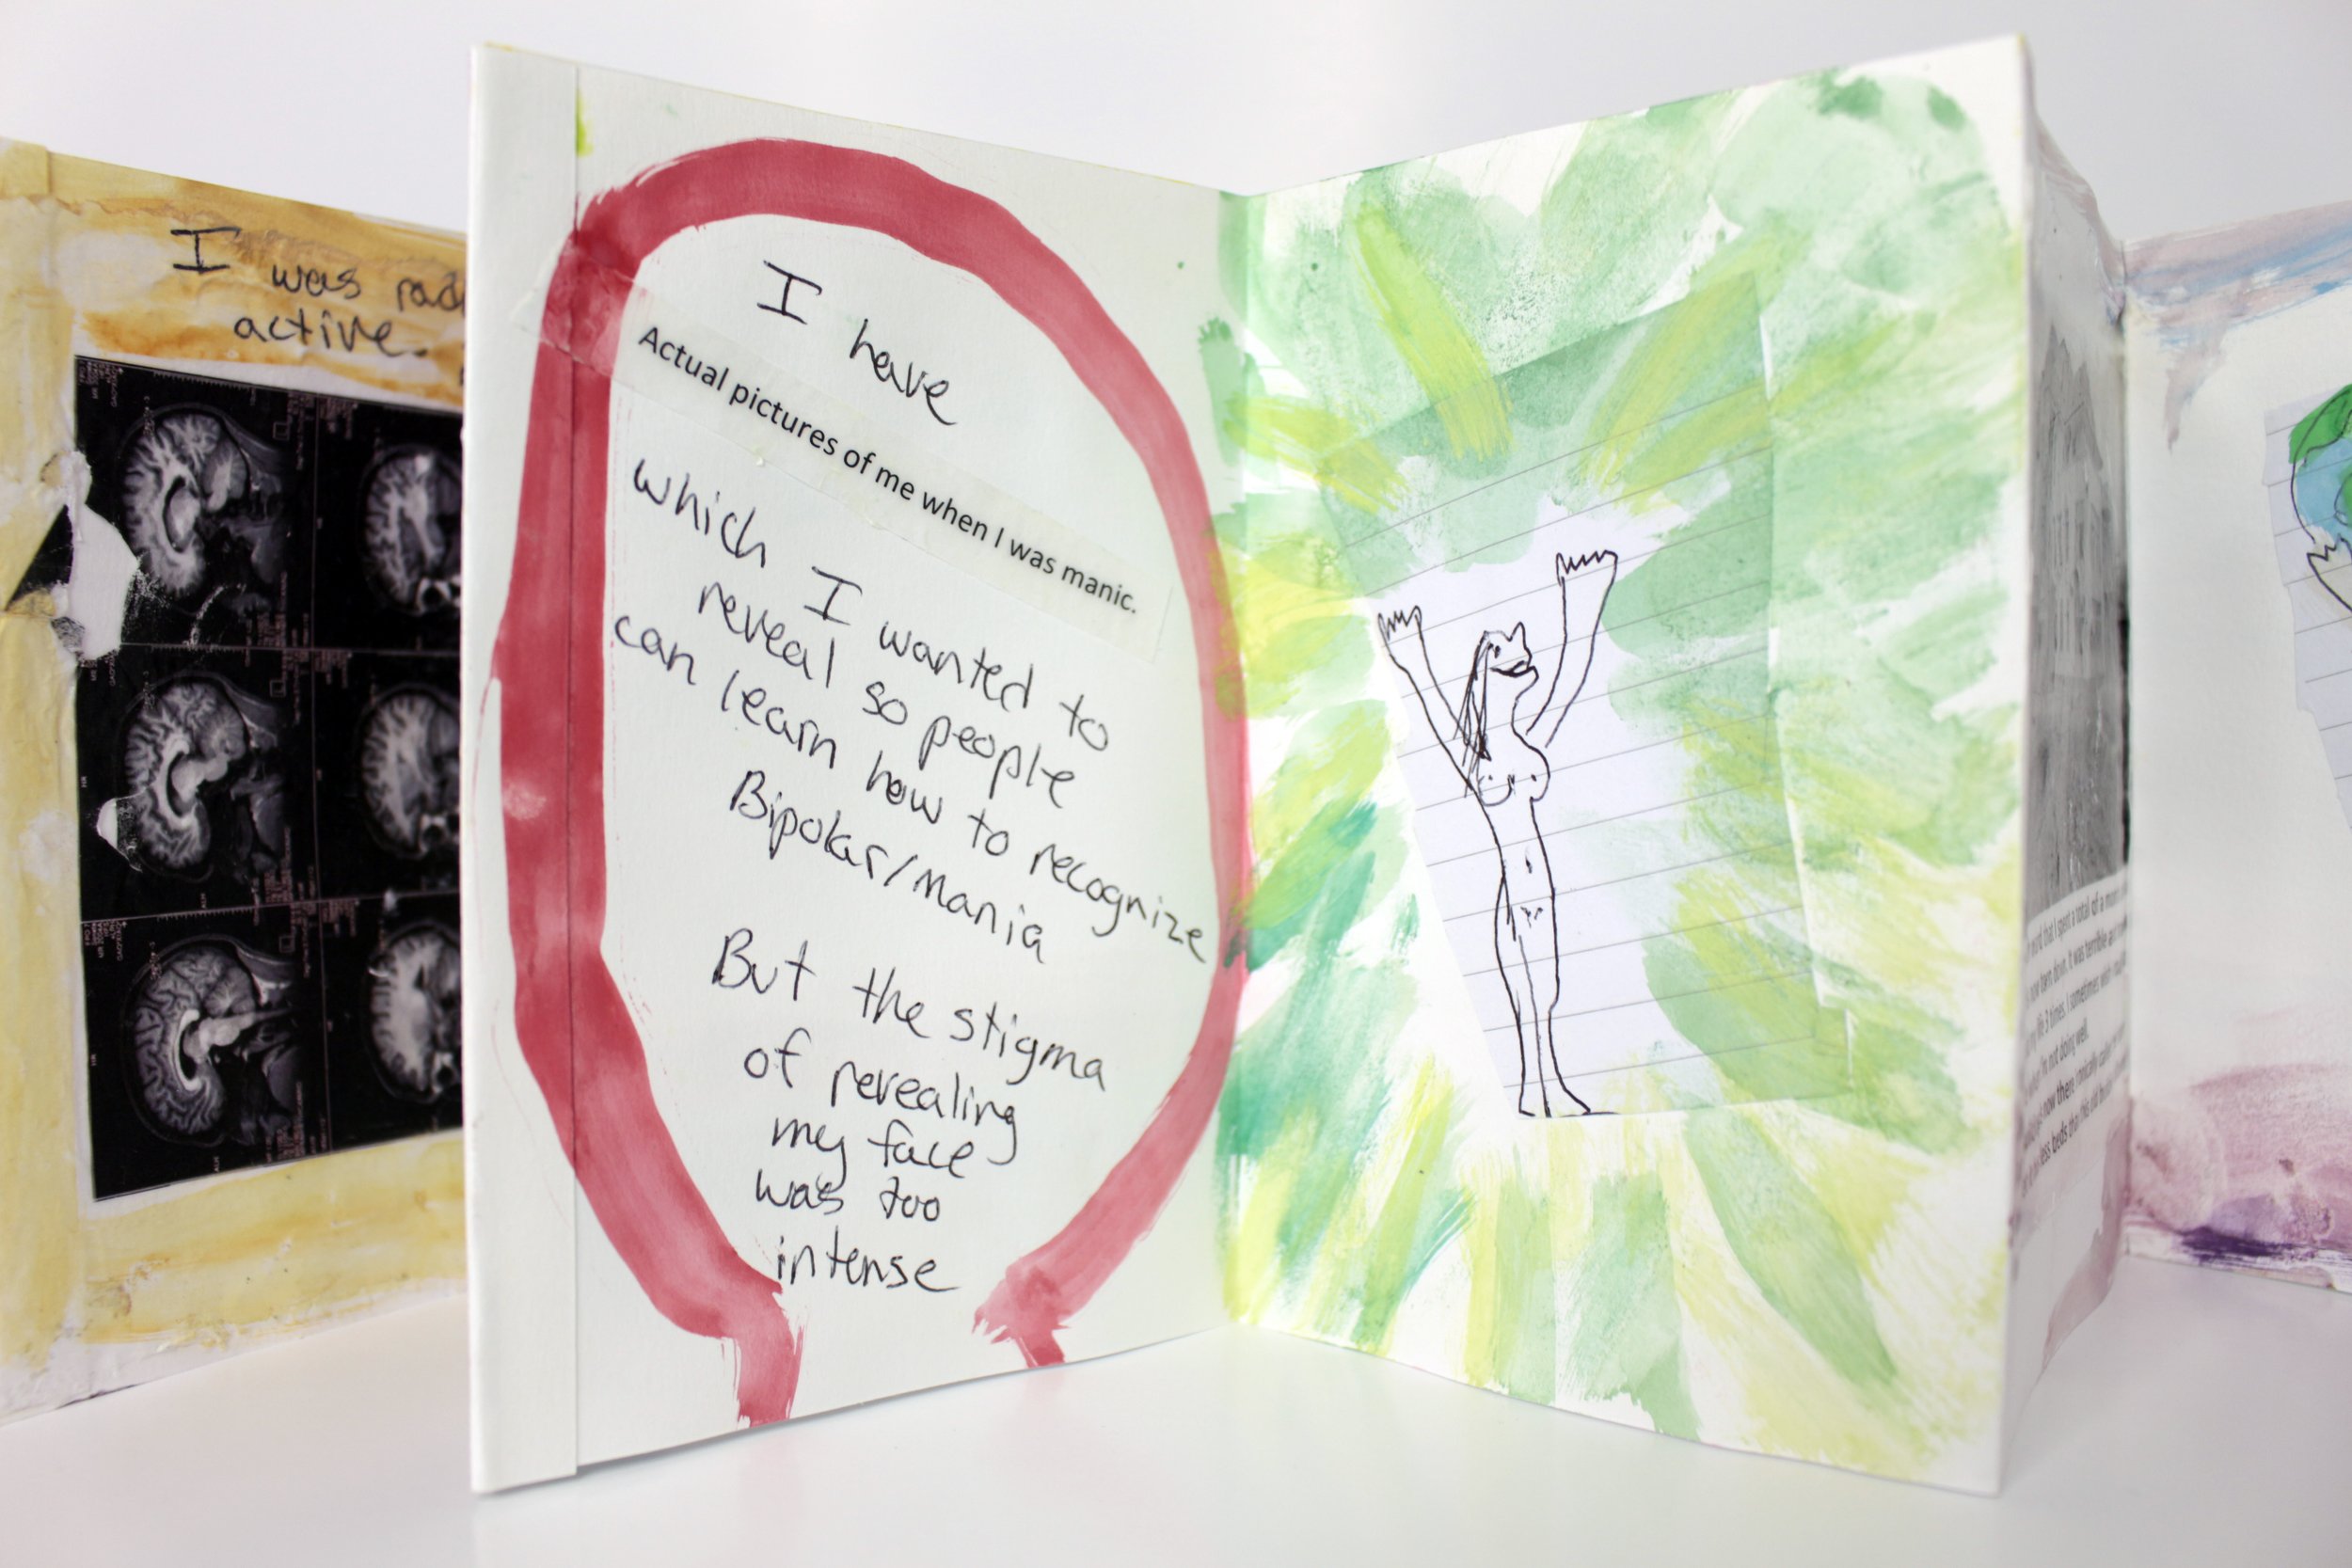 I was
active.
I have
Actual pictures of me when I was manic.
which I wanted to
reveal so people
can learn how to recognize
Bipolar/mania
But the stigma
of revealing
my face
was too
intense
that I spent a total of a
torn down. It was terrible
life 3 times. I sometimes wish
I'm not doing well.
now there
less beds